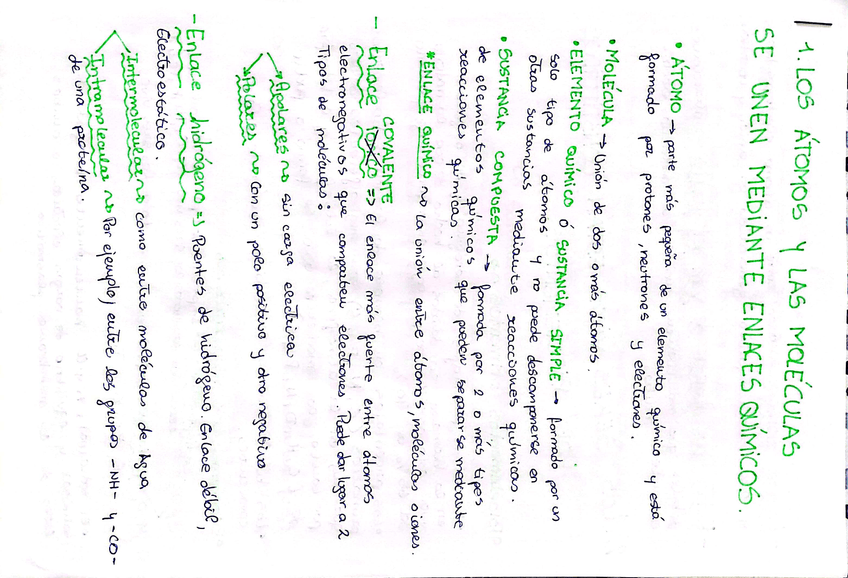 1. LOS ÁTOMOS Y LAS MOLÉCULAS
SE UNEN MEDIANTE ENLACES QUÍMICOS.
• ÁTOMO → parte más pequeña de un elemento químico y está
formado por protones, neutrones y electrones.
• MOLÉCULA → Unión de dos o más átomos.
• ELEMENTO QUÍMICO Ó SUSTANCIA SIMPLE → formado por un
solo tipo de átomos y no puede descomponerse en
otras sustancias mediante reacciones químicas.
• SUSTANCIA COMPUESTA → formada por 2 o más tipes
de elementos químicos que pueden separarse mediante
reacciones químicas.
*ENLACE QUÍMICO ~> la unión entre átomos, moléculas o iones.
COVALENTE
- Enlace => El enlace más fuerte entre átomos
electronegativos que comparten electrones. Puede dar lugar a 2
Tipos de moléculas:
→ Apolares ~> sin carga electrica
→ Polares ~> Con un polo positivo y otro negativo
- Enlace hidrógeno => Puentes de hidrógeno. Enlace débil,
Electroestático.
Intermolecular ~> como entre moléculas de Agua
Intramolecular ~> Por ejemplo, entre los grupos -NH- y -CO-
de una proteína.